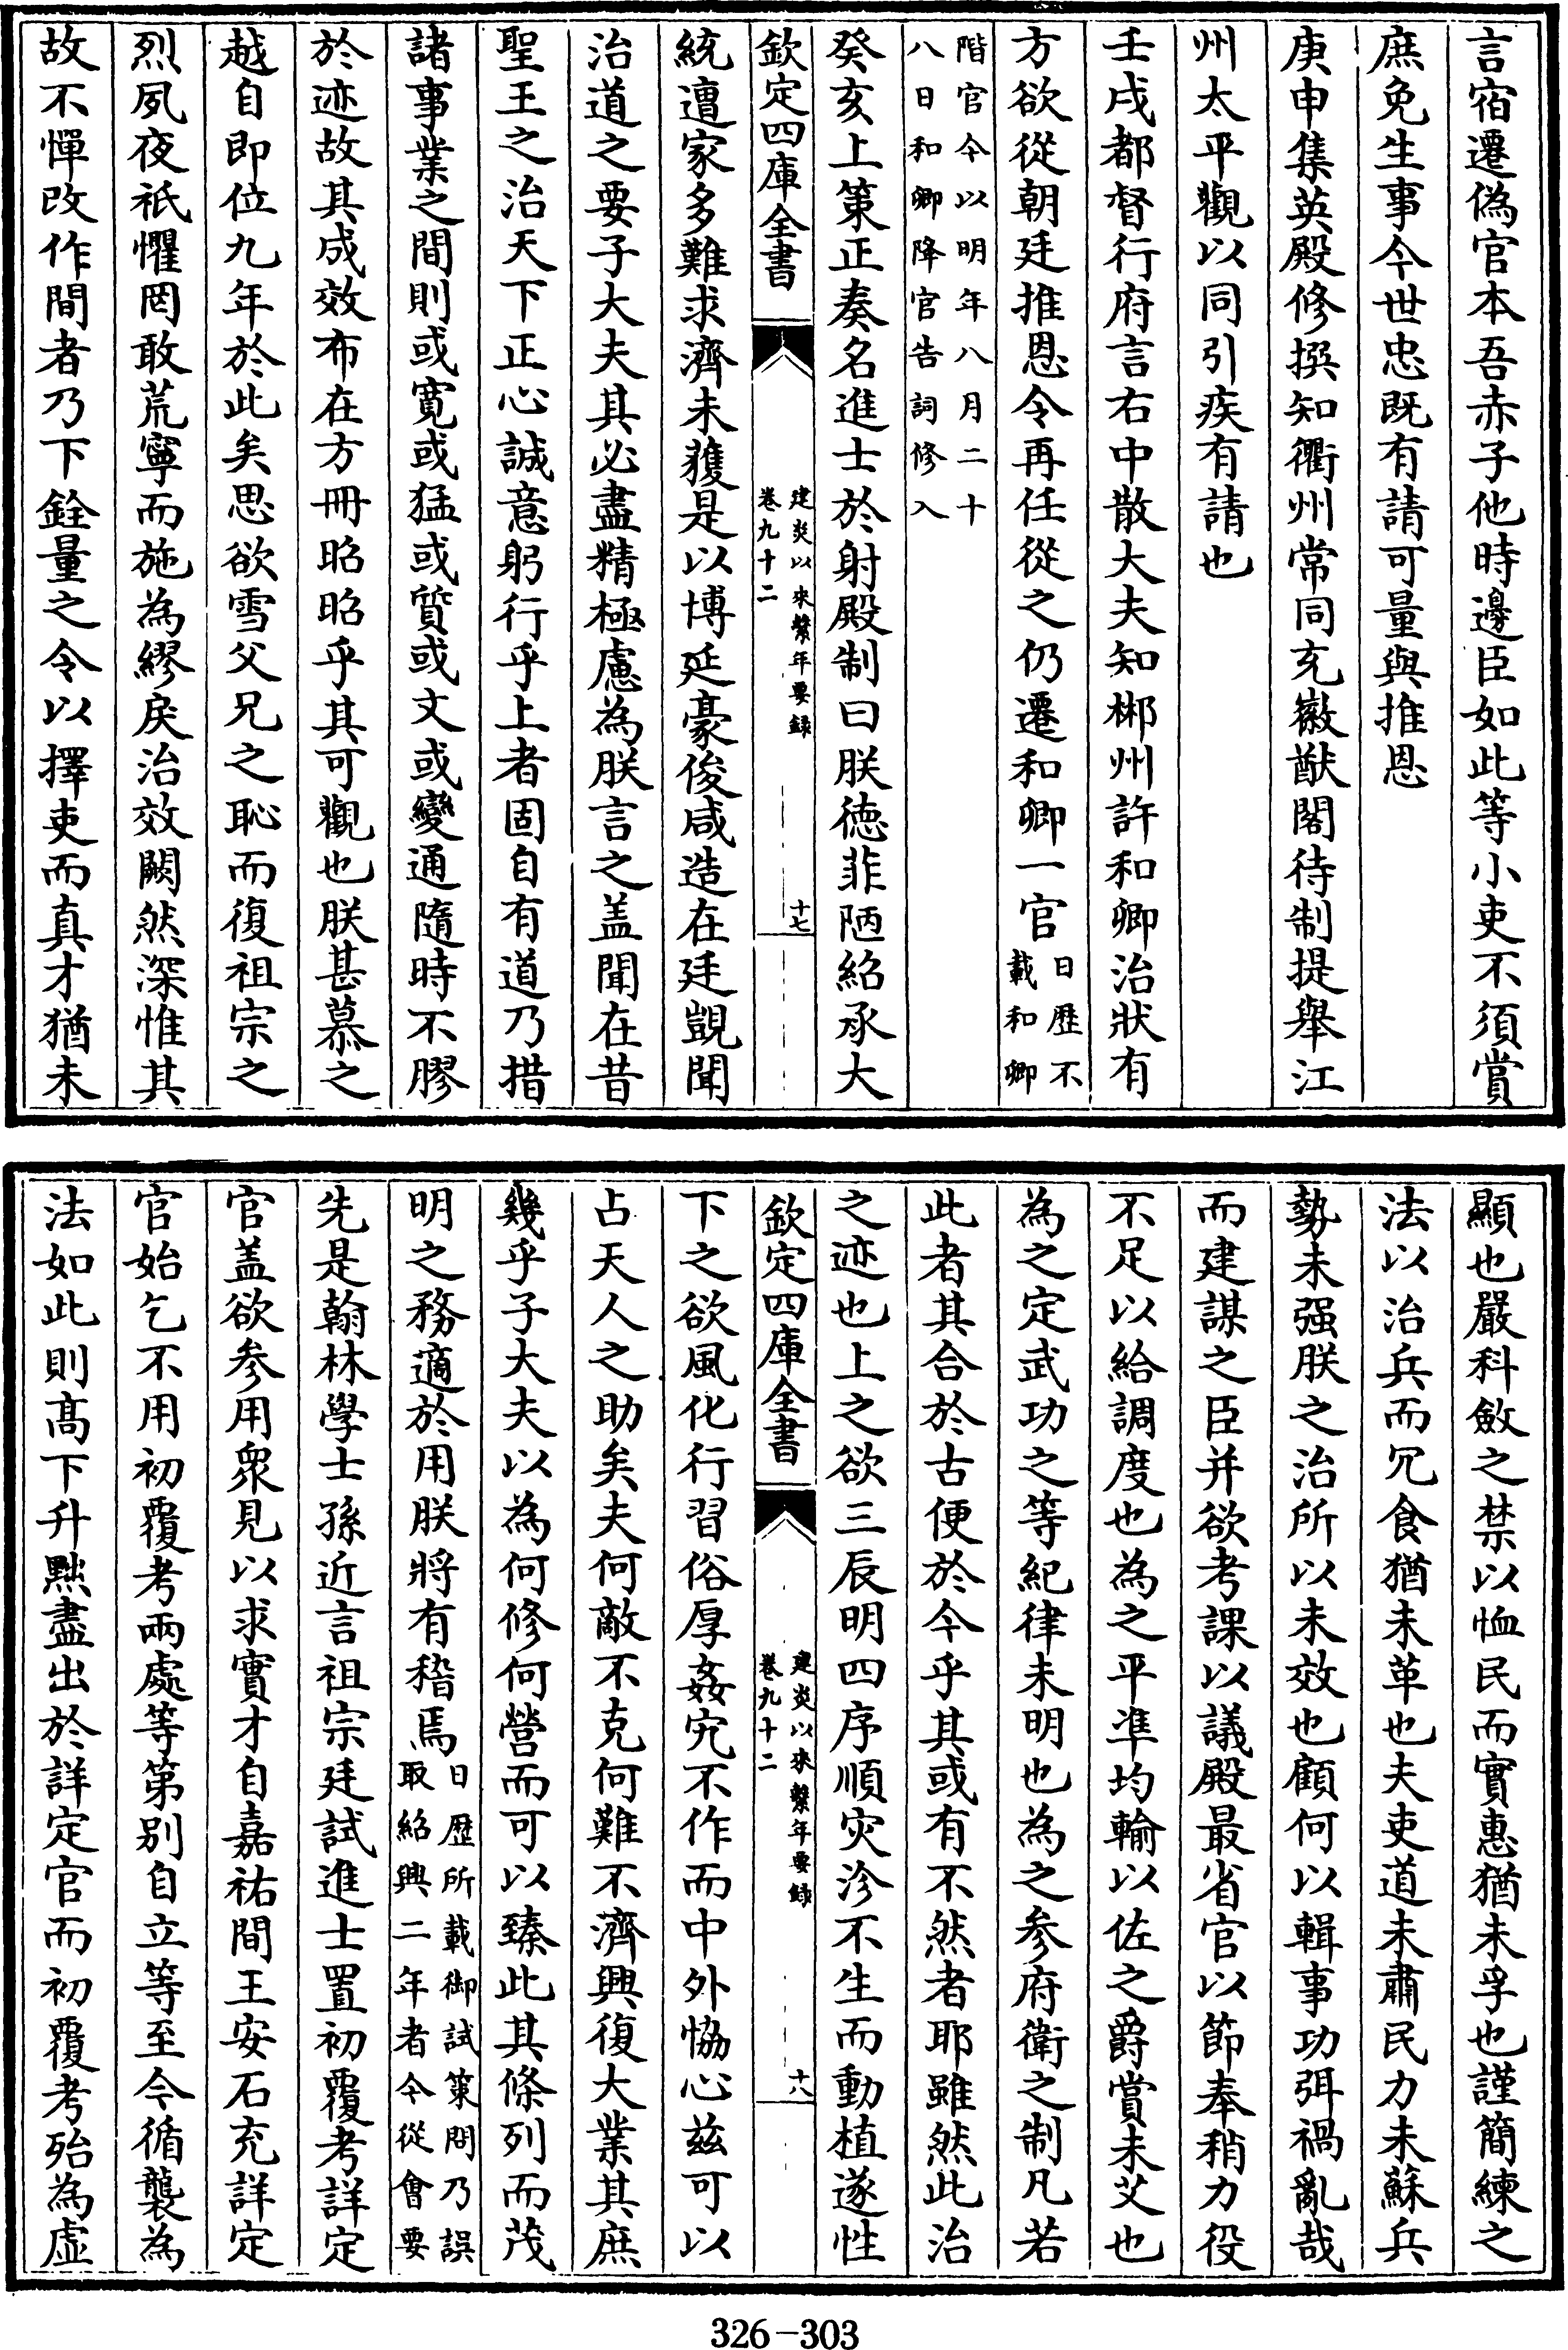 言宿遷偽官本吾赤子他時邊臣如此等小吏不須賞
庶免生事今世忠既有請可量與推恩
庚申集英殿修撰知衢州常同充徽猷閣待制提舉江
州太平觀以同引疾有請也
壬戌都督行府言右中散大夫知郴州許和卿治狀有
方欲從朝廷推恩令再任從之仍遷和卿一官日歷不載和卿
階官今以明年八月二十八日和卿降官告詞修入
癸亥上策正奏名進士於射殿制曰朕徳菲陋紹承大
欽定四庫全書
建炎以來繫年要録
卷九十二
十七
統遭家多難求濟未獲是以博延豪俊咸造在廷覬聞
治道之要子大夫其必盡精極慮為朕言之盖聞在昔
聖王之治天下正心誠意躬行乎上者固自有道乃措
諸事業之間則或寛或猛或質或文或變通隨時不膠
於迹故其成效布在方冊昭昭乎其可觀也朕甚慕之
越自即位九年於此矣思欲雪父兄之恥而復祖宗之
烈夙夜祇懼罔敢荒寧而施為繆戾治效闕然深惟其
故不憚改作間者乃下銓量之令以擇吏而真才猶未
顯也嚴科斂之禁以恤民而實惠猶未孚也謹簡練之
法以治兵而冗食猶未革也夫吏道未肅民力未蘇兵
勢未强朕之治所以未效也顧何以輯事功弭禍亂哉
而建謀之臣并欲考課以議殿最省官以節奉稍力役
不足以給調度也為之平準均輸以佐之爵賞未艾也
為之定武功之等紀律未明也為之参府衛之制凡若
此者其合於古便於今乎其或有不然者耶雖然此治
之迹也上之欲三辰明四序順灾沴不生而動植遂性
欽定四庫全書
建炎以來繫年要録
卷九十二
十八
下之欲風化行習俗厚姦宄不作而中外恊心兹可以
占天人之助矣夫何敵不克何難不濟興復大業其庶
幾乎子大夫以為何修何營而可以臻此其條列而茂
明之務適於用朕將有稽焉日歷所載御試策問乃誤取紹興二年者今從會要
先是翰林學士孫近言祖宗廷試進士置初覆考詳定
官盖欲参用衆見以求實才自嘉祐間王安石充詳定
官始乞不用初覆考兩處等第别自立等至今循襲為
法如此則髙下升黜盡出於詳定官而初覆考殆為虚
326-303